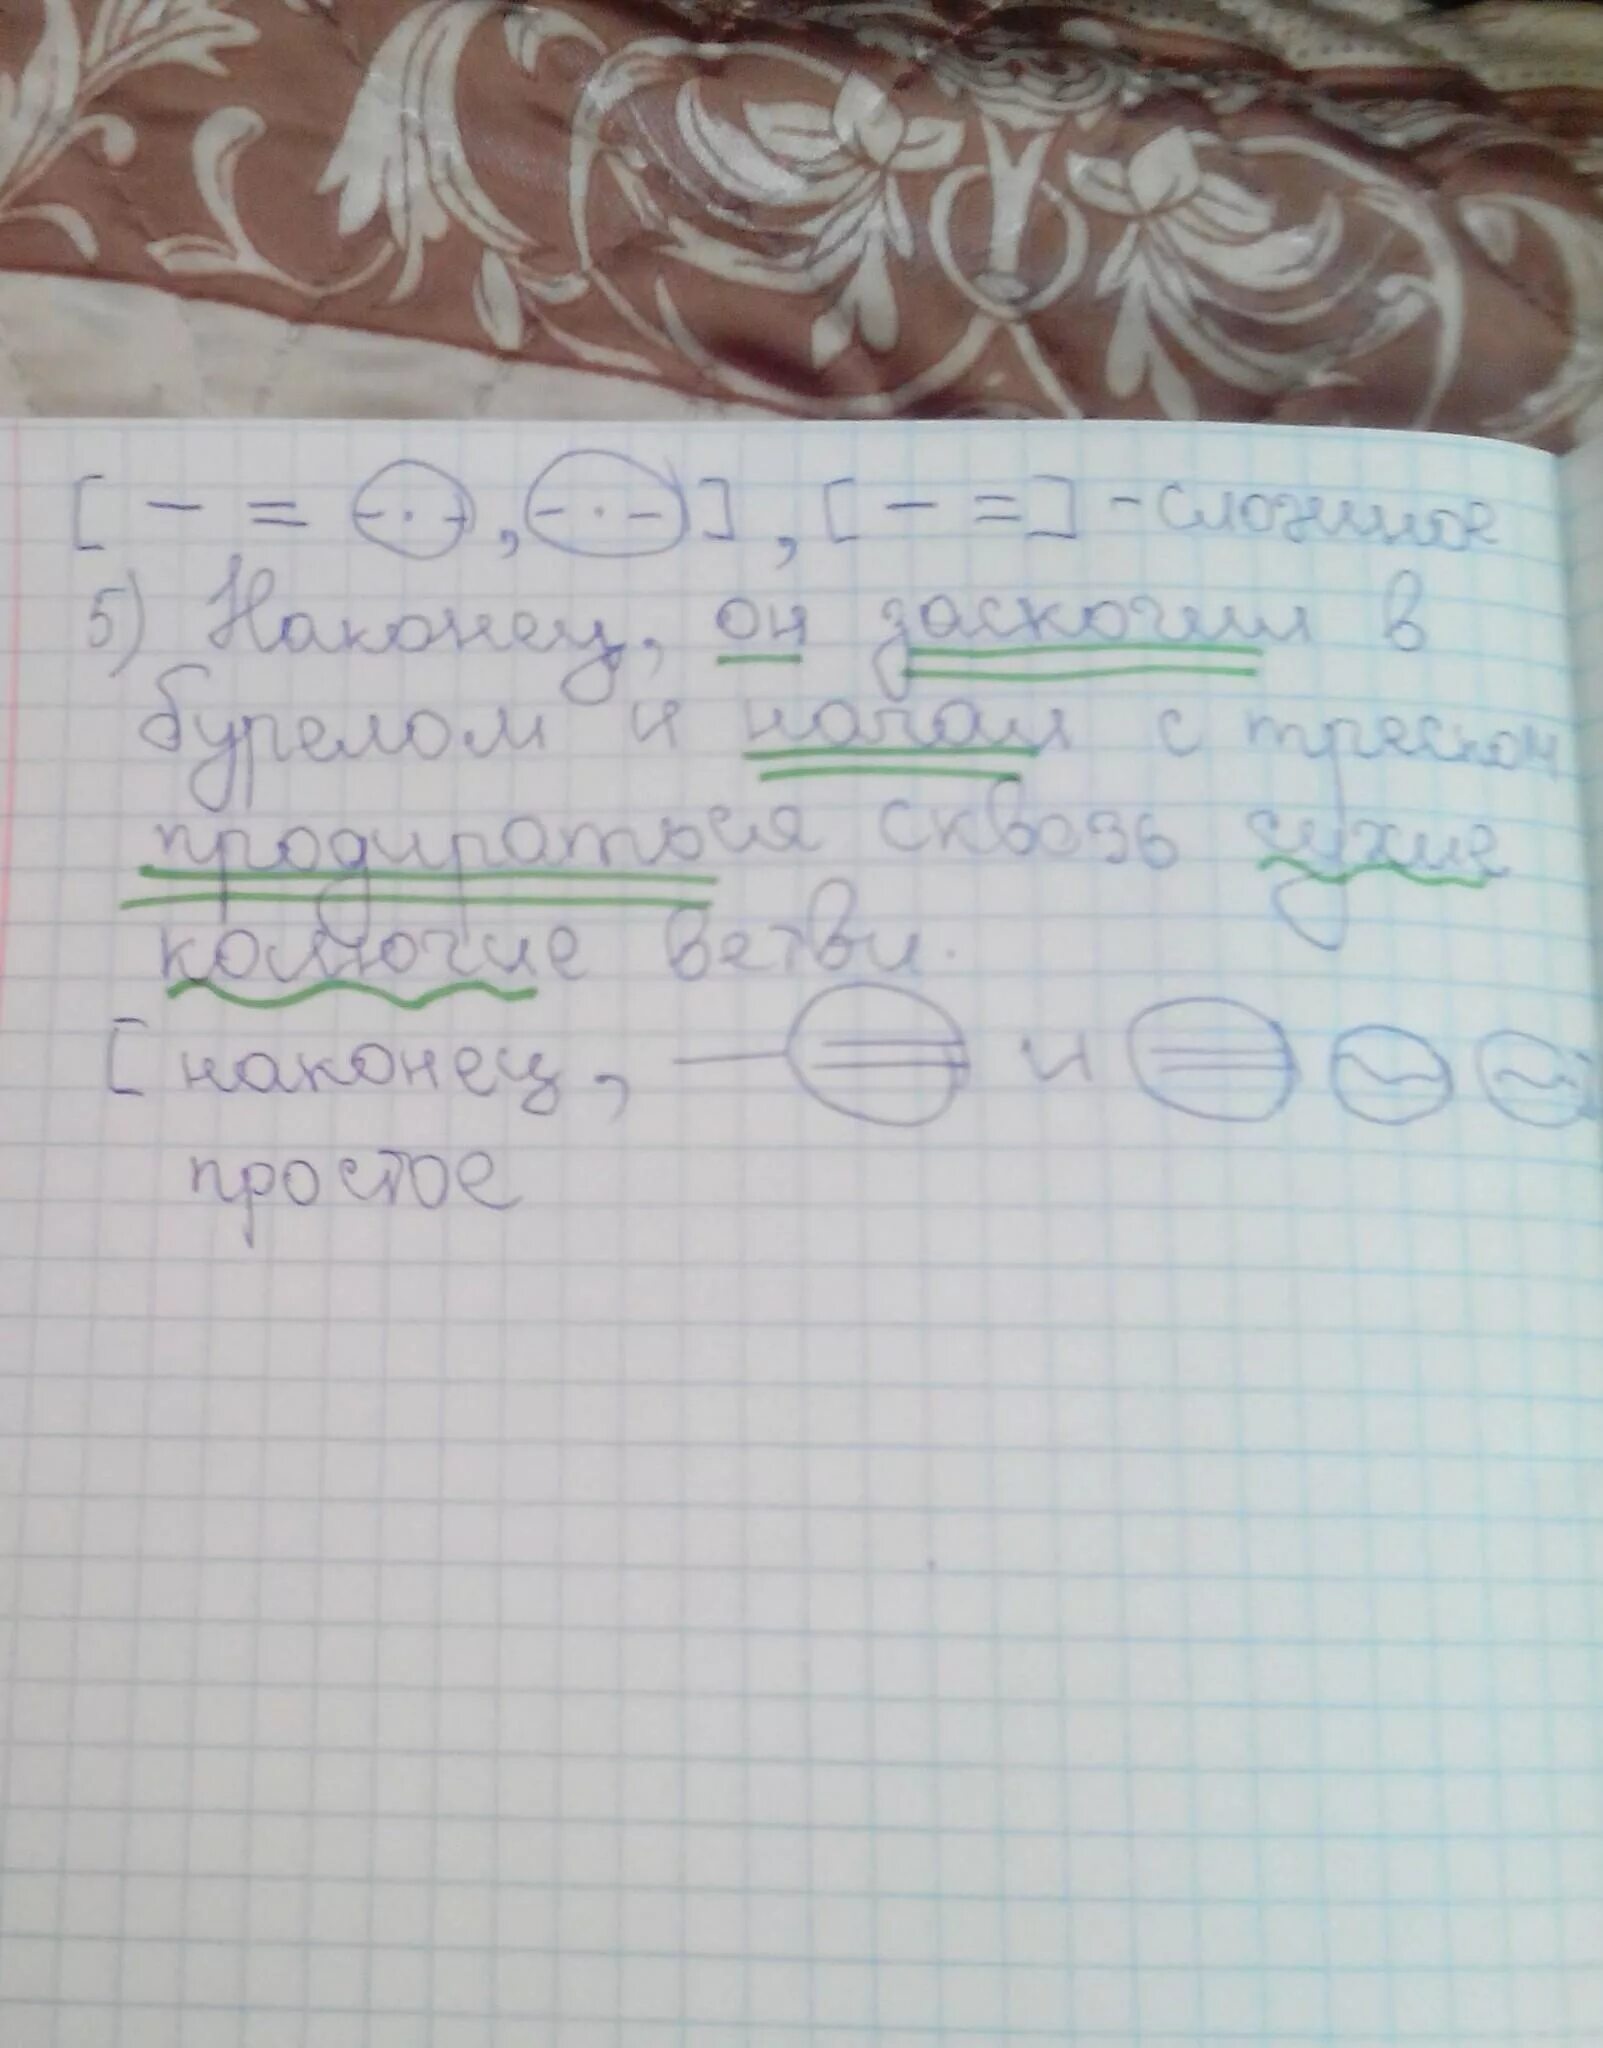 [ – = (– · –), (– · –)], [ – =] – сложное
5) Наконец, он заскочил в
бурелом и начал с треском
продираться сквозь сухие
колючие ветви.
[ наконец, — (=) и (=) (~) (~)]
простое